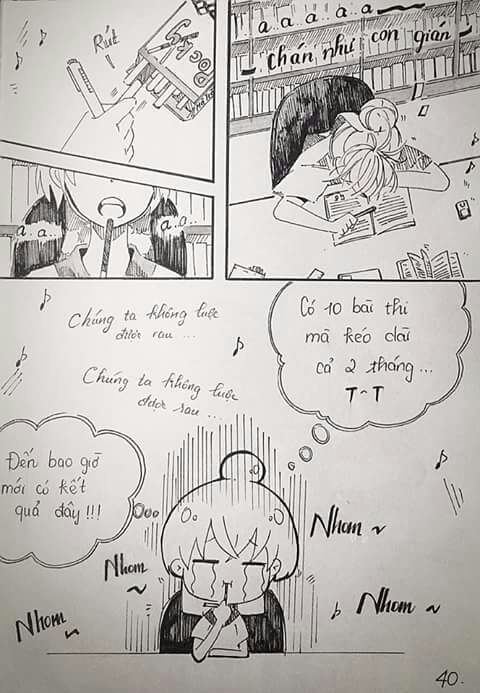 Rút
POCKY
a..a..a..a..a
Chán như con gián
a..a..
a..a..
Chúng ta không luộc
được rau ...
Chúng ta không luộc
được rau ...
Có 10 bài thi
mà kéo dài
cả 2 tháng...
T^T
Đến bao giờ
mới có kết
quả đây!!!
Nhom ~
Nhom ~
Nhom ~
Nhom ~
40.